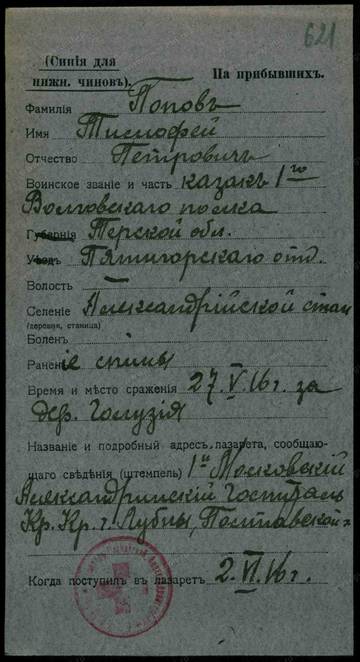 621
(Синія для
нижн. чиновъ).
На прибывшихъ.
Фамилія Поповъ
Имя Тимофей
Отчество Петровичъ
Воинское званіе и часть казакъ 1го
Волговскаго полка
Губернія Терской обл.
Уѣздъ Пятигорскаго отд.
Волость
Селеніе Александрійской стан
(деревня, станица)
Боленъ
Раненіе спины
Время и мѣсто сраженія 27.V.16 г. за
дер. Голузія
Названіе и подробный адресъ лазарета, сообщаю-
щаго свѣдѣнія (штемпель) 1й Московскій
Александринскій Госпиталь
Кр. Кр. г. Лубны, Полтавской г.
Когда поступилъ въ лазаретъ 2.VI.16 г.